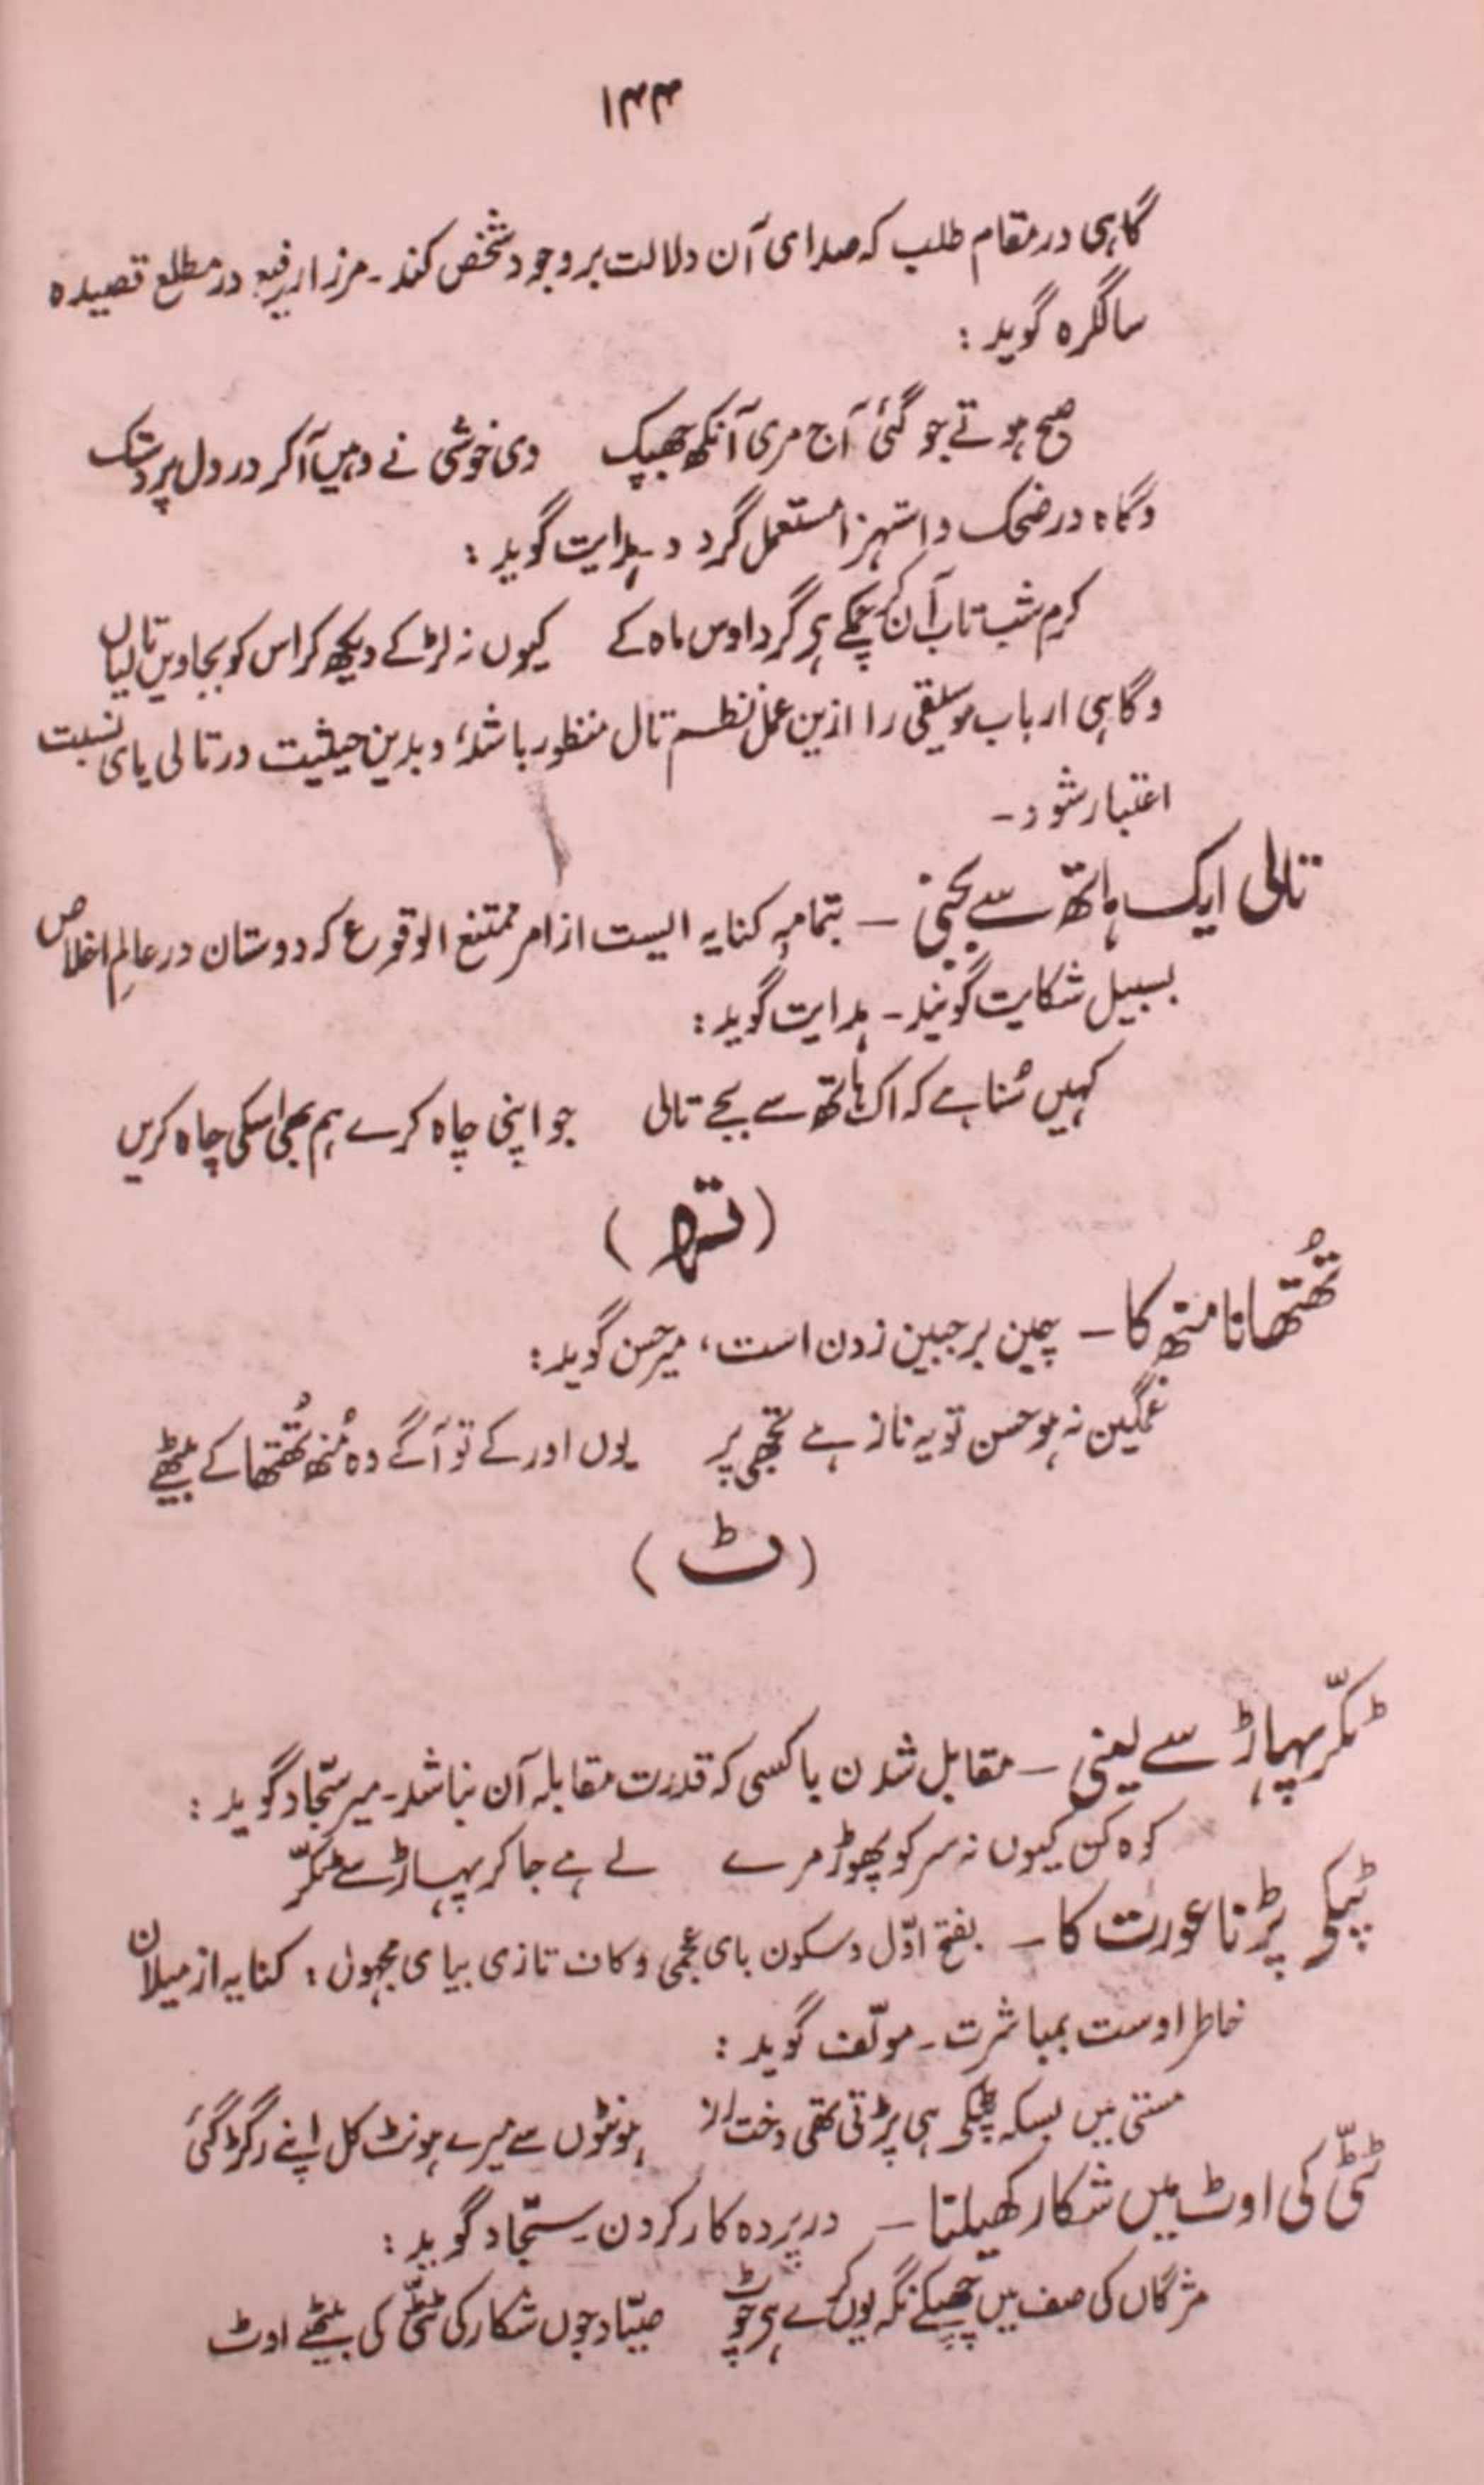 ۱۴۴
گاہی در مقام طلب کہ صدای آن دلالت بر وجود شخص کند۔ مرزا رفیع در مطلع قصیدہ
سالگرہ گوید :
صبح ہوتے جو گئی آج مری آنکھ جھپک دی خوشی نے وہیں آکر در دل پر دستک
وگاہ در ضحک و استہزا مستعمل گردد۔ ہدایت گوید :
کرم شب تاب آن کر چمکے ہے گرد اوس ماہ کے کیوں نہ لڑکے دیکھ کر اس کو بجاویں تالیاں
وگاہی ارباب موسیقی را ازین عمل نظم تال منظور باشد، و بدین حیثیت در تالی یای نسبت
اعتبار شود۔
تالی ایک ہاتھ سے بجنی — بتمامہ کنایہ ایست از امر ممتنع الوقوع کہ دوستان در عالمِ اخلاص
بسبیل شکایت گویند۔ ہدایت گوید :
کہیں سُنا ہے کہ اک ہاتھ سے بجے تالی جو اپنی چاہ کرے ہم بھی اسکی چاہ کریں
(تھ)
تُھتھانا منھ کا — چین بر جبین زدن است، میر حسن گوید :
غمگین نہ ہو حسن تو یہ ناز ہے تجھی پر یوں اور کے تو آگے وہ مُنھ تُھتھا کے بیٹھے
(ٹ)
ٹکّر پہاڑ سے لینی — مقابل شدن با کسی کہ قدرت مقابلہ آن نباشد۔ میر سجّاد گوید :
کوہ کن کیوں نہ سر کو پھوڑ مرے لے ہے جا کر پہاڑ سے ٹکّر
ٹپکی پڑنا عورت کا — بفتح اوّل و سکون بای عجمی و کاف تازی بیای مجہول : کنایہ از میلان
خاطر اوست بمباشرت۔ مولّف گوید :
مستی میں بسکہ ٹپکی ہی پڑتی تھی دخت رز ہونٹوں سے میرے ہونٹ کل اپنے رگڑ گئی
ٹٹّی کی اوٹ میں شکار کھیلنا — در پردہ کار کردن۔ سجّاد گوید :
مژگاں کی صف میں چھپکے نگہ یوں کرے ہے چوٹ صیّاد جوں شکار کی ٹٹّی کی بیٹھے اوٹ